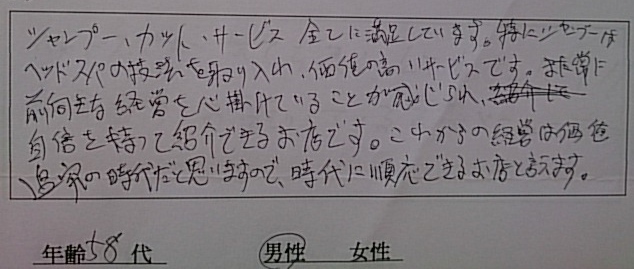 シャンプー、カット、サービス 全てに満足しています。特にシャンプーは
ヘッドスパの技法を取り入れ、価値の高いサービスです。非常に
前向きな経営を心掛けていることが感じられ、紹介して
自信を持って紹介できるお店です。これからの経営は価値
追求の時代だと思いますので、時代に順応できるお店と言えます。
年齢58代 男性 女性